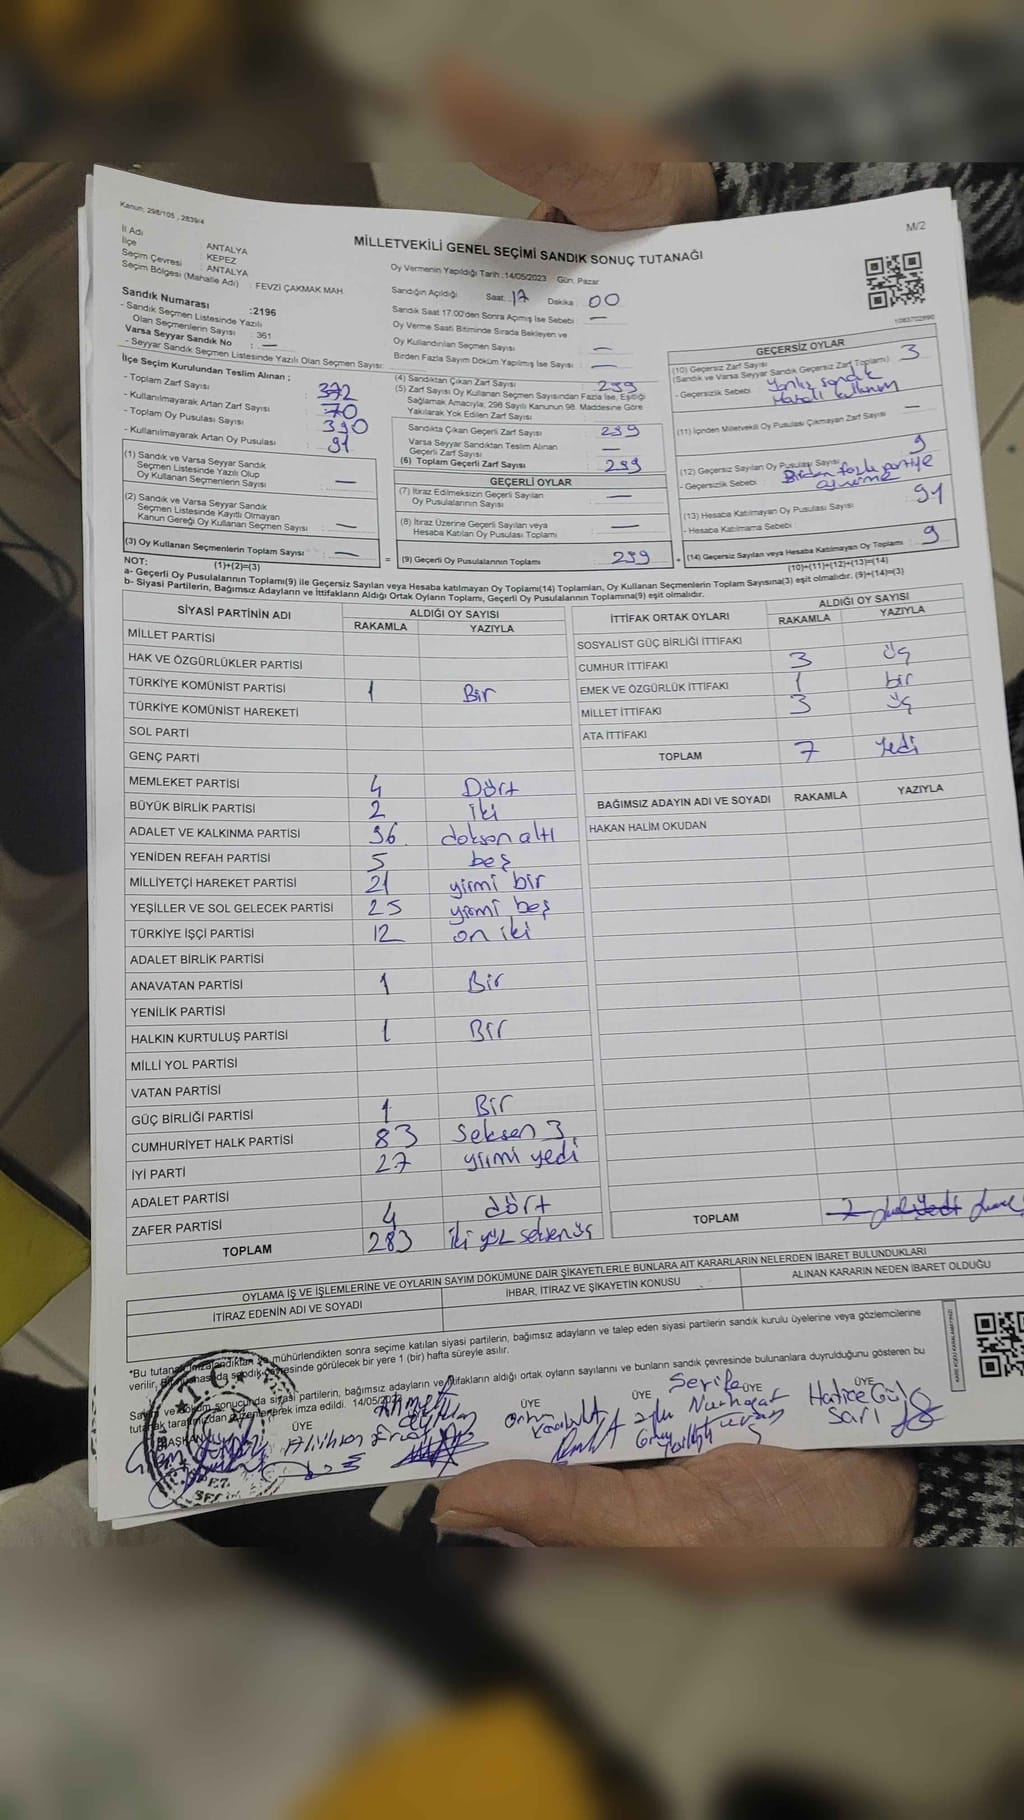 Kanun: 298/105 , 2839/4
M/2
MİLLETVEKİLİ GENEL SEÇİMİ SANDIK SONUÇ TUTANAĞI
İl Adı : ANTALYA
İlçe : KEPEZ
Seçim Çevresi : ANTALYA
Seçim Bölgesi (Mahalle Adı) : FEVZİ ÇAKMAK MAH.
Sandık Numarası :2196
- Sandık Seçmen Listesinde Yazılı
Olan Seçmenlerin Sayısı : 361
Varsa Seyyar Sandık No : —
- Seyyar Sandık Seçmen Listesinde Yazılı Olan Seçmen Sayısı:
İlçe Seçim Kurulundan Teslim Alınan ;
- Toplam Zarf Sayısı : 372
- Kullanılmayarak Artan Zarf Sayısı : 70
- Toplam Oy Pusulası Sayısı : 390
- Kullanılmayarak Artan Oy Pusulası : 91
(1) Sandık ve Varsa Seyyar Sandık
Seçmen Listesinde Yazılı Olup
Oy Kullanan Seçmenlerin Sayısı : —
(2) Sandık ve Varsa Seyyar Sandık
Seçmen Listesinde Kayıtlı Olmayan
Kanun Gereği Oy Kullanan Seçmen Sayısı : —
(3) Oy Kullanan Seçmenlerin Toplam Sayısı : —
(1)+(2)=(3)
Oy Vermenin Yapıldığı Tarih :14/05/2023 Gün: Pazar
Sandığın Açıldığı Saat: 17 Dakika : 00
Sandık Saat 17.00'den Sonra Açılmış İse Sebebi : —
Oy Verme Saati Bitiminde Sırada Bekleyen ve
Oy Kullandırılan Seçmen Sayısı : —
Birden Fazla Sayım Döküm Yapılmış İse Sayısı : —
(4) Sandıktan Çıkan Zarf Sayısı : 299
(5) Zarf Sayısı Oy Kullanan Seçmen Sayısından Fazla İse, Eşitliği
Sağlamak Amacıyla; 298 Sayılı Kanunun 98. Maddesine Göre
Yakılarak Yok Edilen Zarf Sayısı :
Sandıkta Çıkan Geçerli Zarf Sayısı : 299
Varsa Seyyar Sandıktan Teslim Alınan
Geçerli Zarf Sayısı : —
(6) Toplam Geçerli Zarf Sayısı : 299
GEÇERLİ OYLAR
(7) İtiraz Edilmeksizin Geçerli Sayılan
Oy Pusulalarının Sayısı : —
(8) İtiraz Üzerine Geçerli Sayılan veya
Hesaba Katılan Oy Pusulası Toplamı : —
= (9) Geçerli Oy Pusulalarının Toplamı : 299
1083702890
GEÇERSİZ OYLAR
(10) Geçersiz Zarf Sayısı : 3
(Sandık ve Varsa Seyyar Sandık Geçersiz Zarf Toplamı)
- Geçersizlik Sebebi : Yanlış sandık
kullanım
(11) İçinden Milletvekili Oy Pusulası Çıkmayan Zarf Sayısı : —
(12) Geçersiz Sayılan Oy Pusulası Sayısı : 9
- Geçersizlik Sebebi : Birden fazla partiye
(13) Hesaba Katılmayan Oy Pusulası Sayısı : 91
- Hesaba Katılmama Sebebi :
+ (14) Geçersiz Sayılan veya Hesaba Katılmayan Oy Toplamı : 9
(10)+(11)+(12)+(13)=(14)
NOT:
a- Geçerli Oy Pusulalarının Toplamı(9) ile Geçersiz Sayılan veya Hesaba katılmayan Oy Toplamı(14) Toplamları, Oy Kullanan Seçmenlerin Toplam Sayısına(3) eşit olmalıdır. (9)+(14)=(3)
b- Siyasi Partilerin, Bağımsız Adayların ve İttifakların Aldığı Ortak Oyların Toplamı, Geçerli Oy Pusulalarının Toplamına(9) eşit olmalıdır.
SİYASİ PARTİNİN ADI ALDIĞI OY SAYISI
RAKAMLA YAZIYLA
MİLLET PARTİSİ
HAK VE ÖZGÜRLÜKLER PARTİSİ
TÜRKİYE KOMÜNİST PARTİSİ 1 Bir
TÜRKİYE KOMÜNİST HAREKETİ
SOL PARTİ
GENÇ PARTİ
MEMLEKET PARTİSİ 4 Dört
BÜYÜK BİRLİK PARTİSİ 2 iki
ADALET VE KALKINMA PARTİSİ 96 doksan altı
YENİDEN REFAH PARTİSİ 5 beş
MİLLİYETÇİ HAREKET PARTİSİ 21 yirmi bir
YEŞİLLER VE SOL GELECEK PARTİSİ 25 yirmi beş
TÜRKİYE İŞÇİ PARTİSİ 12 on iki
ADALET BİRLİK PARTİSİ
ANAVATAN PARTİSİ 1 Bir
YENİLİK PARTİSİ
HALKIN KURTULUŞ PARTİSİ 1 Bir
MİLLİ YOL PARTİSİ
VATAN PARTİSİ
GÜÇ BİRLİĞİ PARTİSİ 1 Bir
CUMHURİYET HALK PARTİSİ 83 Seksen 3
İYİ PARTİ 27 yirmi yedi
ADALET PARTİSİ
ZAFER PARTİSİ 4 dört
TOPLAM 283 iki yüz seksen üç
İTTİFAK ORTAK OYLARI ALDIĞI OY SAYISI
RAKAMLA YAZIYLA
SOSYALİST GÜÇ BİRLİĞİ İTTİFAKI
CUMHUR İTTİFAKI 3 üç
EMEK VE ÖZGÜRLÜK İTTİFAKI 1 bir
MİLLET İTTİFAKI 3 üç
ATA İTTİFAKI
TOPLAM 7 yedi
BAĞIMSIZ ADAYIN ADI VE SOYADI RAKAMLA YAZIYLA
HAKAN HALİM OKUDAN
TOPLAM
OYLAMA İŞ VE İŞLEMLERİNE VE OYLARIN SAYIM DÖKÜMÜNE DAİR ŞİKAYETLERLE BUNLARA AİT KARARLARIN NELERDEN İBARET BULUNDUKLARI
İTİRAZ EDENİN ADI VE SOYADI İHBAR, İTİRAZ VE ŞİKAYETİN KONUSU ALINAN KARARIN NEDEN İBARET OLDUĞU
*Bu tutanak imzalandıktan ve mühürlendikten sonra seçime katılan siyasi partilerin, bağımsız adayların ve talep eden siyasi partilerin sandık kurulu üyelerine veya gözlemcilerine
verilir. sandık çevresinde görülecek bir yere 1 (bir) hafta süreyle asılır.
Sayım ve döküm sonucunda siyasi partilerin, bağımsız adayların ve ittifakların aldığı ortak oyların sayılarını ve bunların sandık çevresinde bulunanlara duyurulduğunu gösteren bu
tutanak tarafımızdan düzenlenerek imza edildi. 14/05/2023
BAŞKAN ÜYE ÜYE ÜYE ÜYE
T.C.
Ahmet
Şerife
Hatice Gül
Sarı